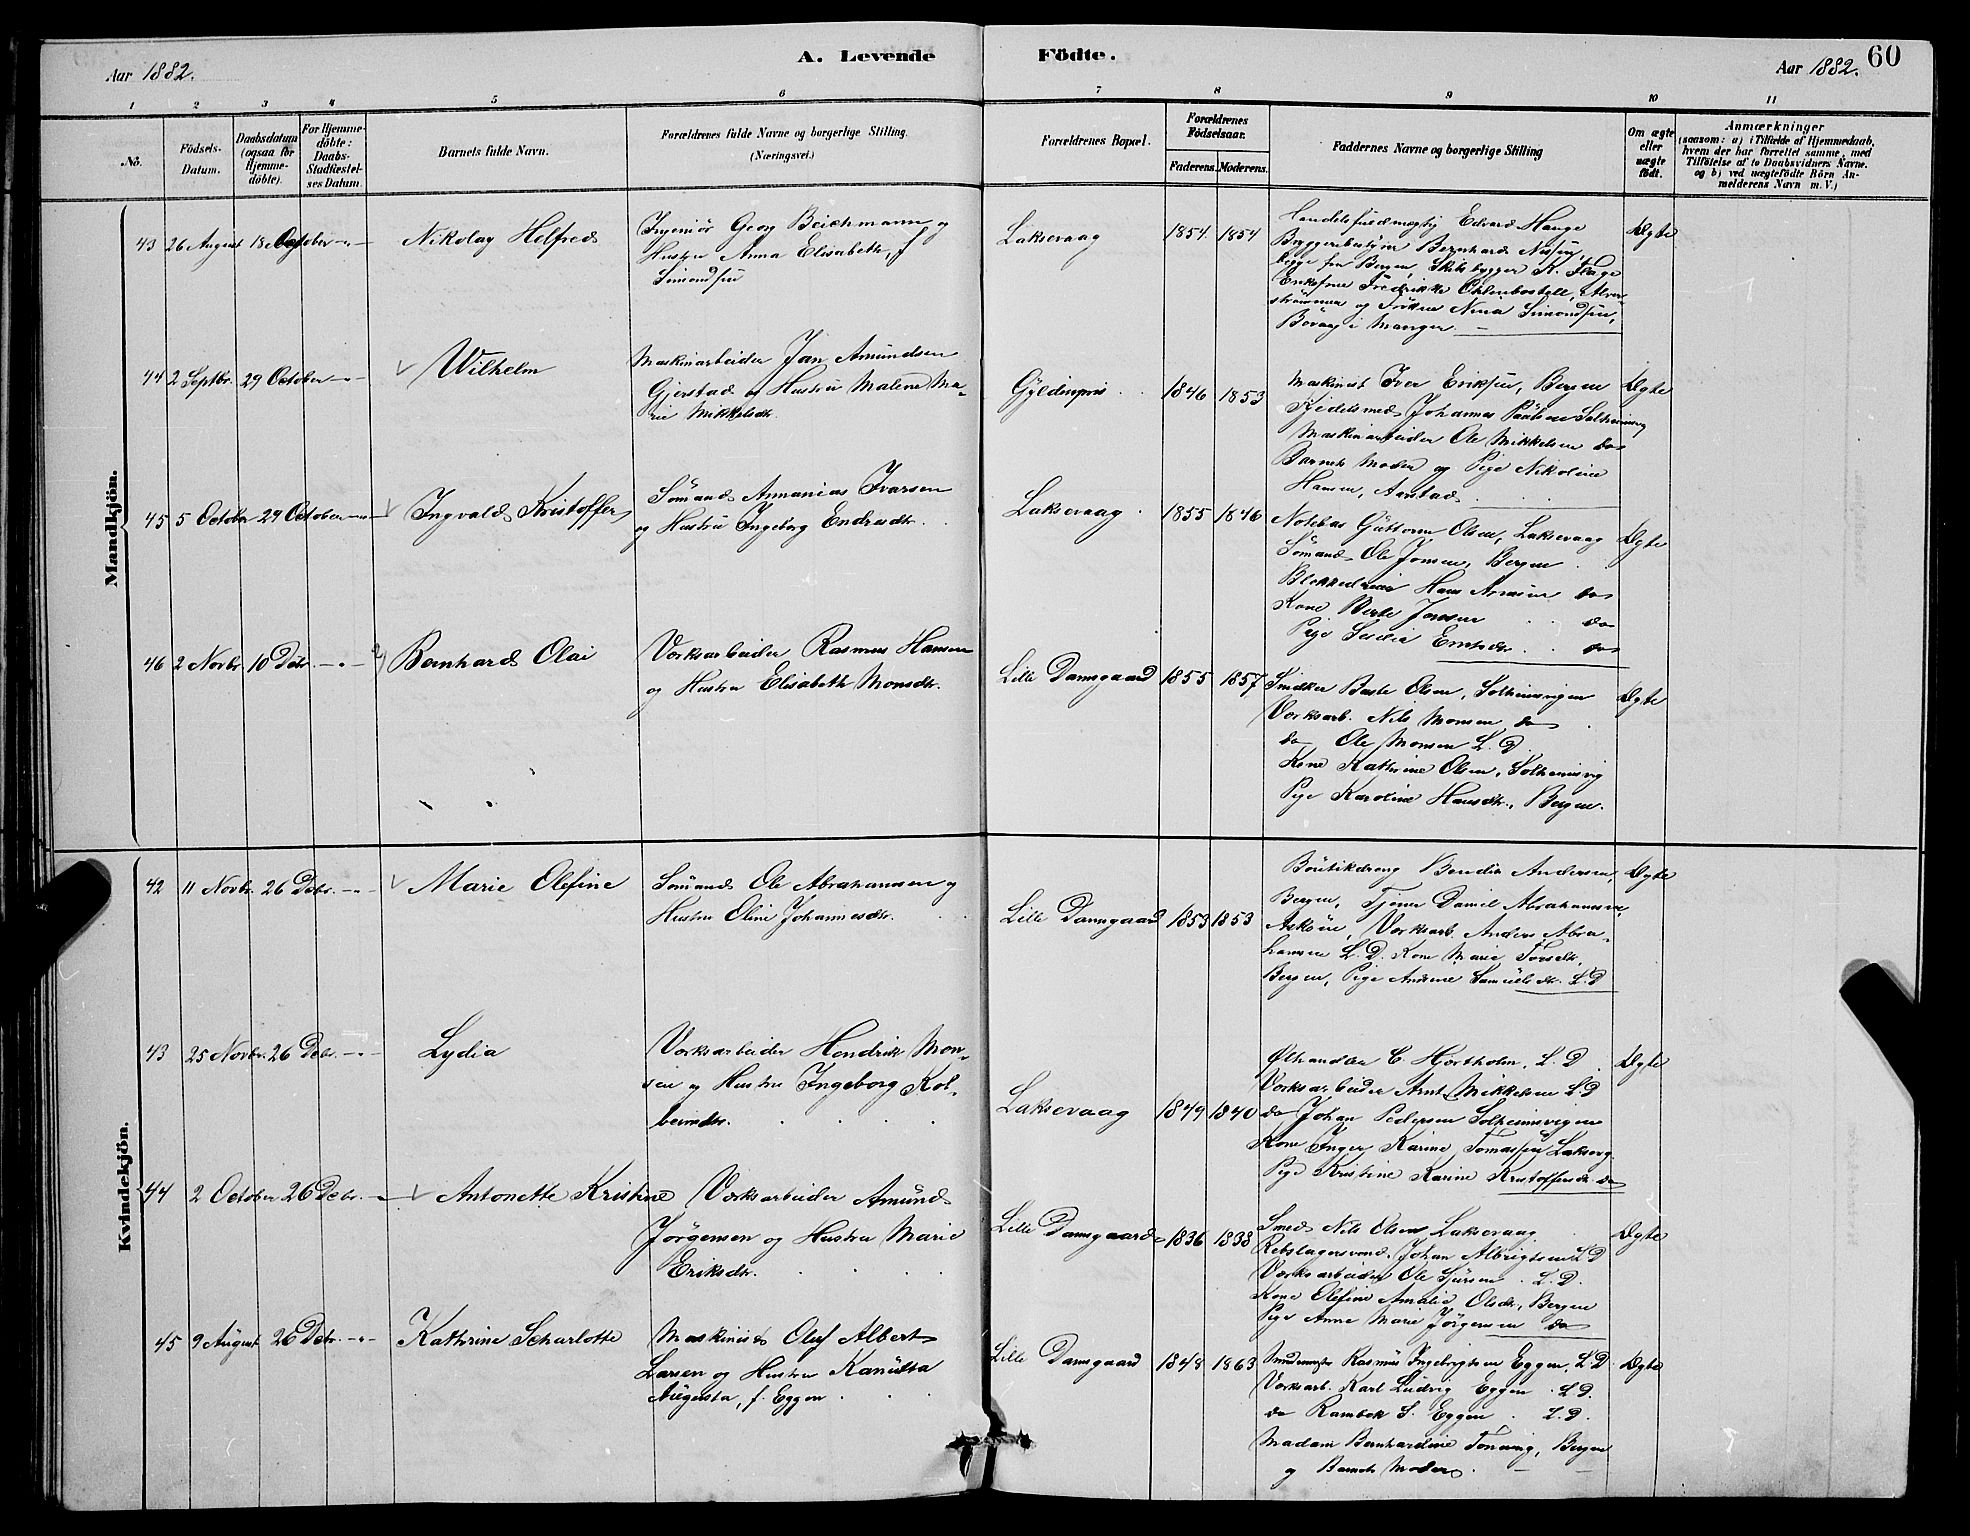 A. Levende Födte.
60
Aar 1882.
Aar 1882.
1 2 3 4 5 6 7 8 9 10 11
No.
Födsels-
Datum.
Daabsdatum
(ogsaa for
Hjemme-
döbte).
For Hjemme-
döbte:
Daabs-
Stadfæstel-
ses Datum.
Barnets fulde Navn.
Forældrenes fulde Navne og borgerlige Stilling.
(Næringsvei.)
Forældrenes Bopæl.
Forældrenes
Födselsaar.
Faderens. Moderens.
Faddernes Navne og borgerlige Stilling
Om ægte
eller
uægte
födt.
Anmærkninger
(saasom: a) i Tilfælde af Hjemmedaab,
hvem der har forrettet samme, med
Tilföielse af to Daabsvidners Navne.
og b) ved uægtefödte Börn An-
melderens Navn m. V.)
Mandkjön.
43 26 August 18 October
Nikolay Helfred
Ingeniør Georg Beichmann og
Hustru Anna Elisabeth, f
Simondsen
Laksevaag
1854. 1854
Handelsfuldmægtig Edvard Hauge
Bryggeribestyrer Bernhard Nissen,
begge fra Bergen, Skibsbygger K. Flage
Enkefrue Fredrikke Ohlenbostell, Alver-
strömmen og Fröken Nina Simondsen,
Bövaag i Manger
Ægte
44 2 Septbr. 29 October
Wilhelm
Maskinarbeider Jan Amundsen
Gjerstad og Hustru Malene Ma-
rie Mikkelsdr.
Gyldenpris
1846 1853
Maskinist Iver Eriksen, Bergen
Kjedelsmed Johannes Paulsen Solheimsvig
Maskinarbeider Ole Mikkelsen do
Barnets Moder og Pige Nikoline
Hansen, Aarstad
Ægte
45 5 October 29 October
Ingvald Kristoffer
Sömand Annanias Ivarsen
og Hustru Ingeborg Endresdr.
Laksevaag
1855 1846
Notebas Guttorm Olsen, Laksevaag
Sömand Ole Jonsen, Bergen
Blokkedreier Hans Arnesen do
Kone Berte Jonsen do
Pige do
Ægte
46 2 Novbr. 10 Debr.
Bernhard Olai
Værksarbeider Rasmus Hansen
og Hustru Elisabeth Monsdr.
Lille Damsgaard
1855 1857
Snedker Baste Olsen, Solheimsvigen
Værksarb. Nils Monsen do
do Ole Monsen L.D.
Kone Kathrine Olsen, Solheimsvig
Pige Karoline Hansdr., Bergen.
Ægte
Kvindekjön.
42 11 Novbr. 26 Debr.
Marie Olefine
Sömand Ole Abrahamsen og
Hustru Oline Johannesdr.
Lille Damsgaard
1853 1853
Boutikdreng Bendix Andersen,
Bergen, Tjener Daniel Abrahamsen,
Asköen, Værksarb. Anders Abra-
hamsen L.D. Kone Marie
Bergen, Pige Andrine Samuelsdr. L.D
Ægte
43 25 Novbr. 26 Debr.
Lydia
Værksarbeider Hendrik Mon-
sen og Hustru Ingeborg Kol-
beinsdr.
Laksevaag
1849 1840
Ølhandler C. Hjortholm, L.D
Værksarbeider Arnt Mikkelsen L.D
do Johan Pedersen Solheimsvigen
Kone Inger Karine Tomassen Laksevg
Pige Kristine Karine Kristoffersdr. do
Ægte
44 2 October 26 Debr.
Antonette Kristine
Værksarbeider Amund
Jörgensen og Hustru Marie
Eriksdr.
Lille Damsgaard
1836 1838
Smed Nils Olsen Laksevaag
Rebslagersvend Johan Albrigtsen L.D
Værksarbeider Ole Sjursen L.D.
Kone Olefine Amalie Olsdr, Bergen
Pige Anne Marie Jörgensen do
Ægte
45 9 August 26 Debr.
Kathrine Scharlotte
Maskinist Oluf Albert
Larsen og Hustru Kanutta
Augusta, f. Eggen
Lille Damsgaard
1848 1863
Rasmus Ingebrigtsen Eggen, L.D.
Værksarb. Karl Ludvig Eggen L.D.
do Rambek S. Eggen L.D.
Madam Bernhardine Tonning, Bergen
og Barnets Moder
Ægte